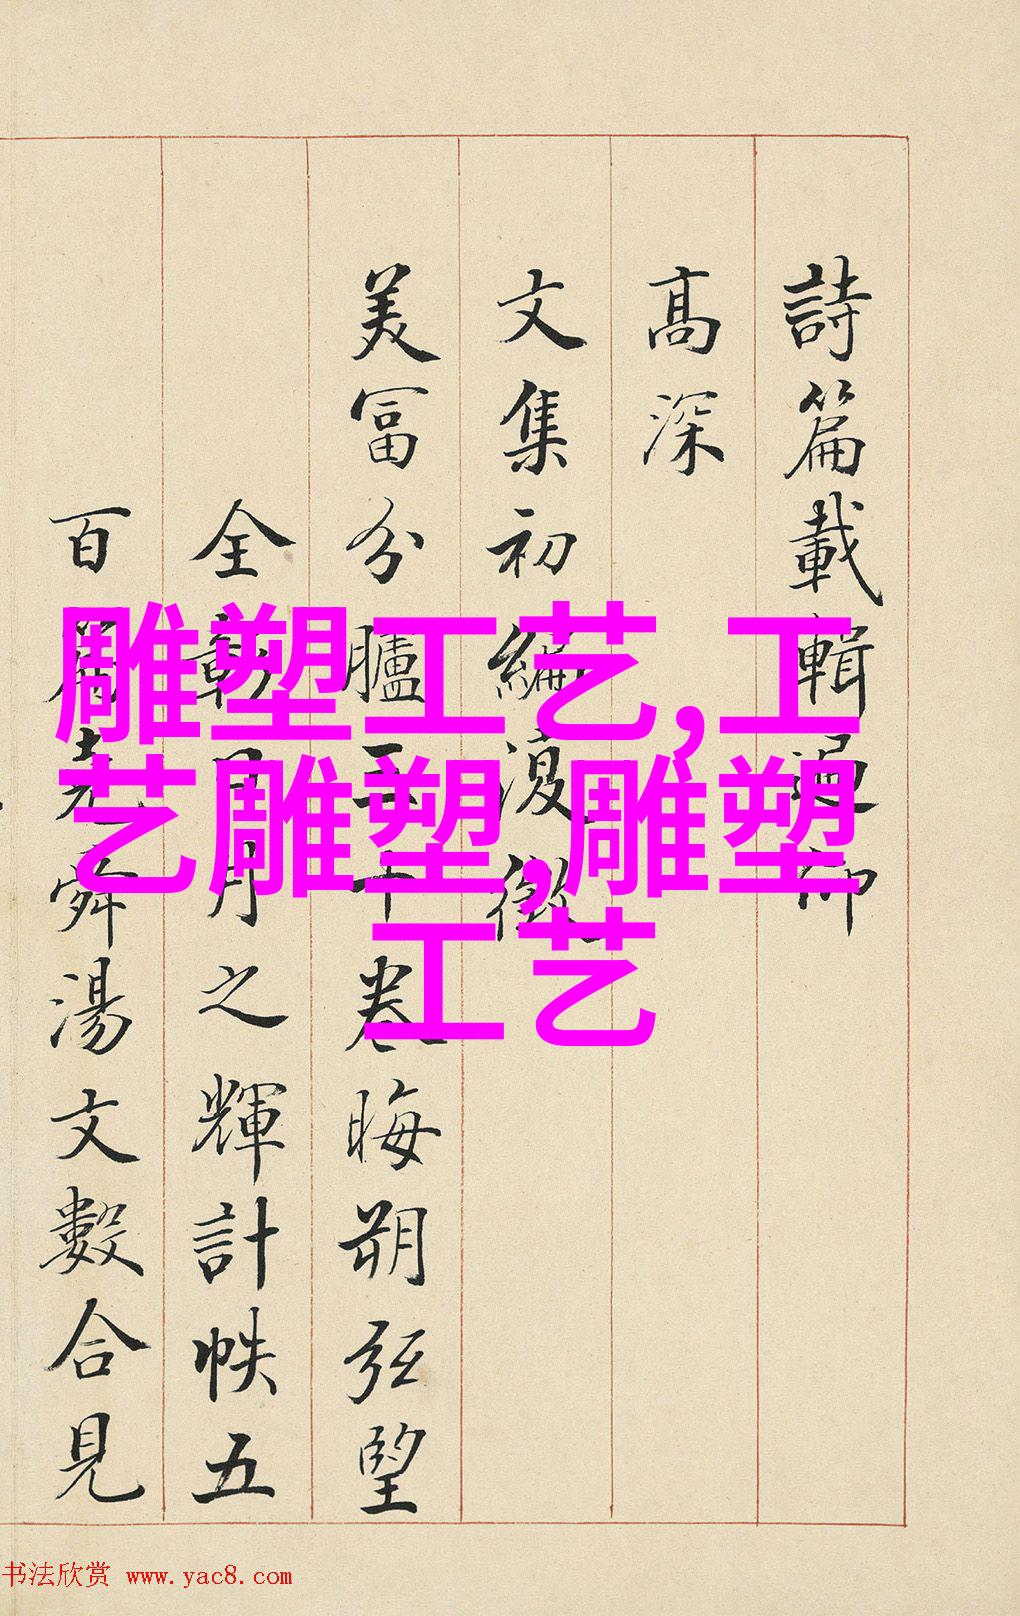 詩篇載輯仰
高深
文集初編
美富分臚五十卷晦朔弦望
全彰日月之輝計帙五
百篇堯舜湯文數合見
雕塑工艺,工
艺雕塑,雕塑
工艺
书法欣赏 www.yac8.com